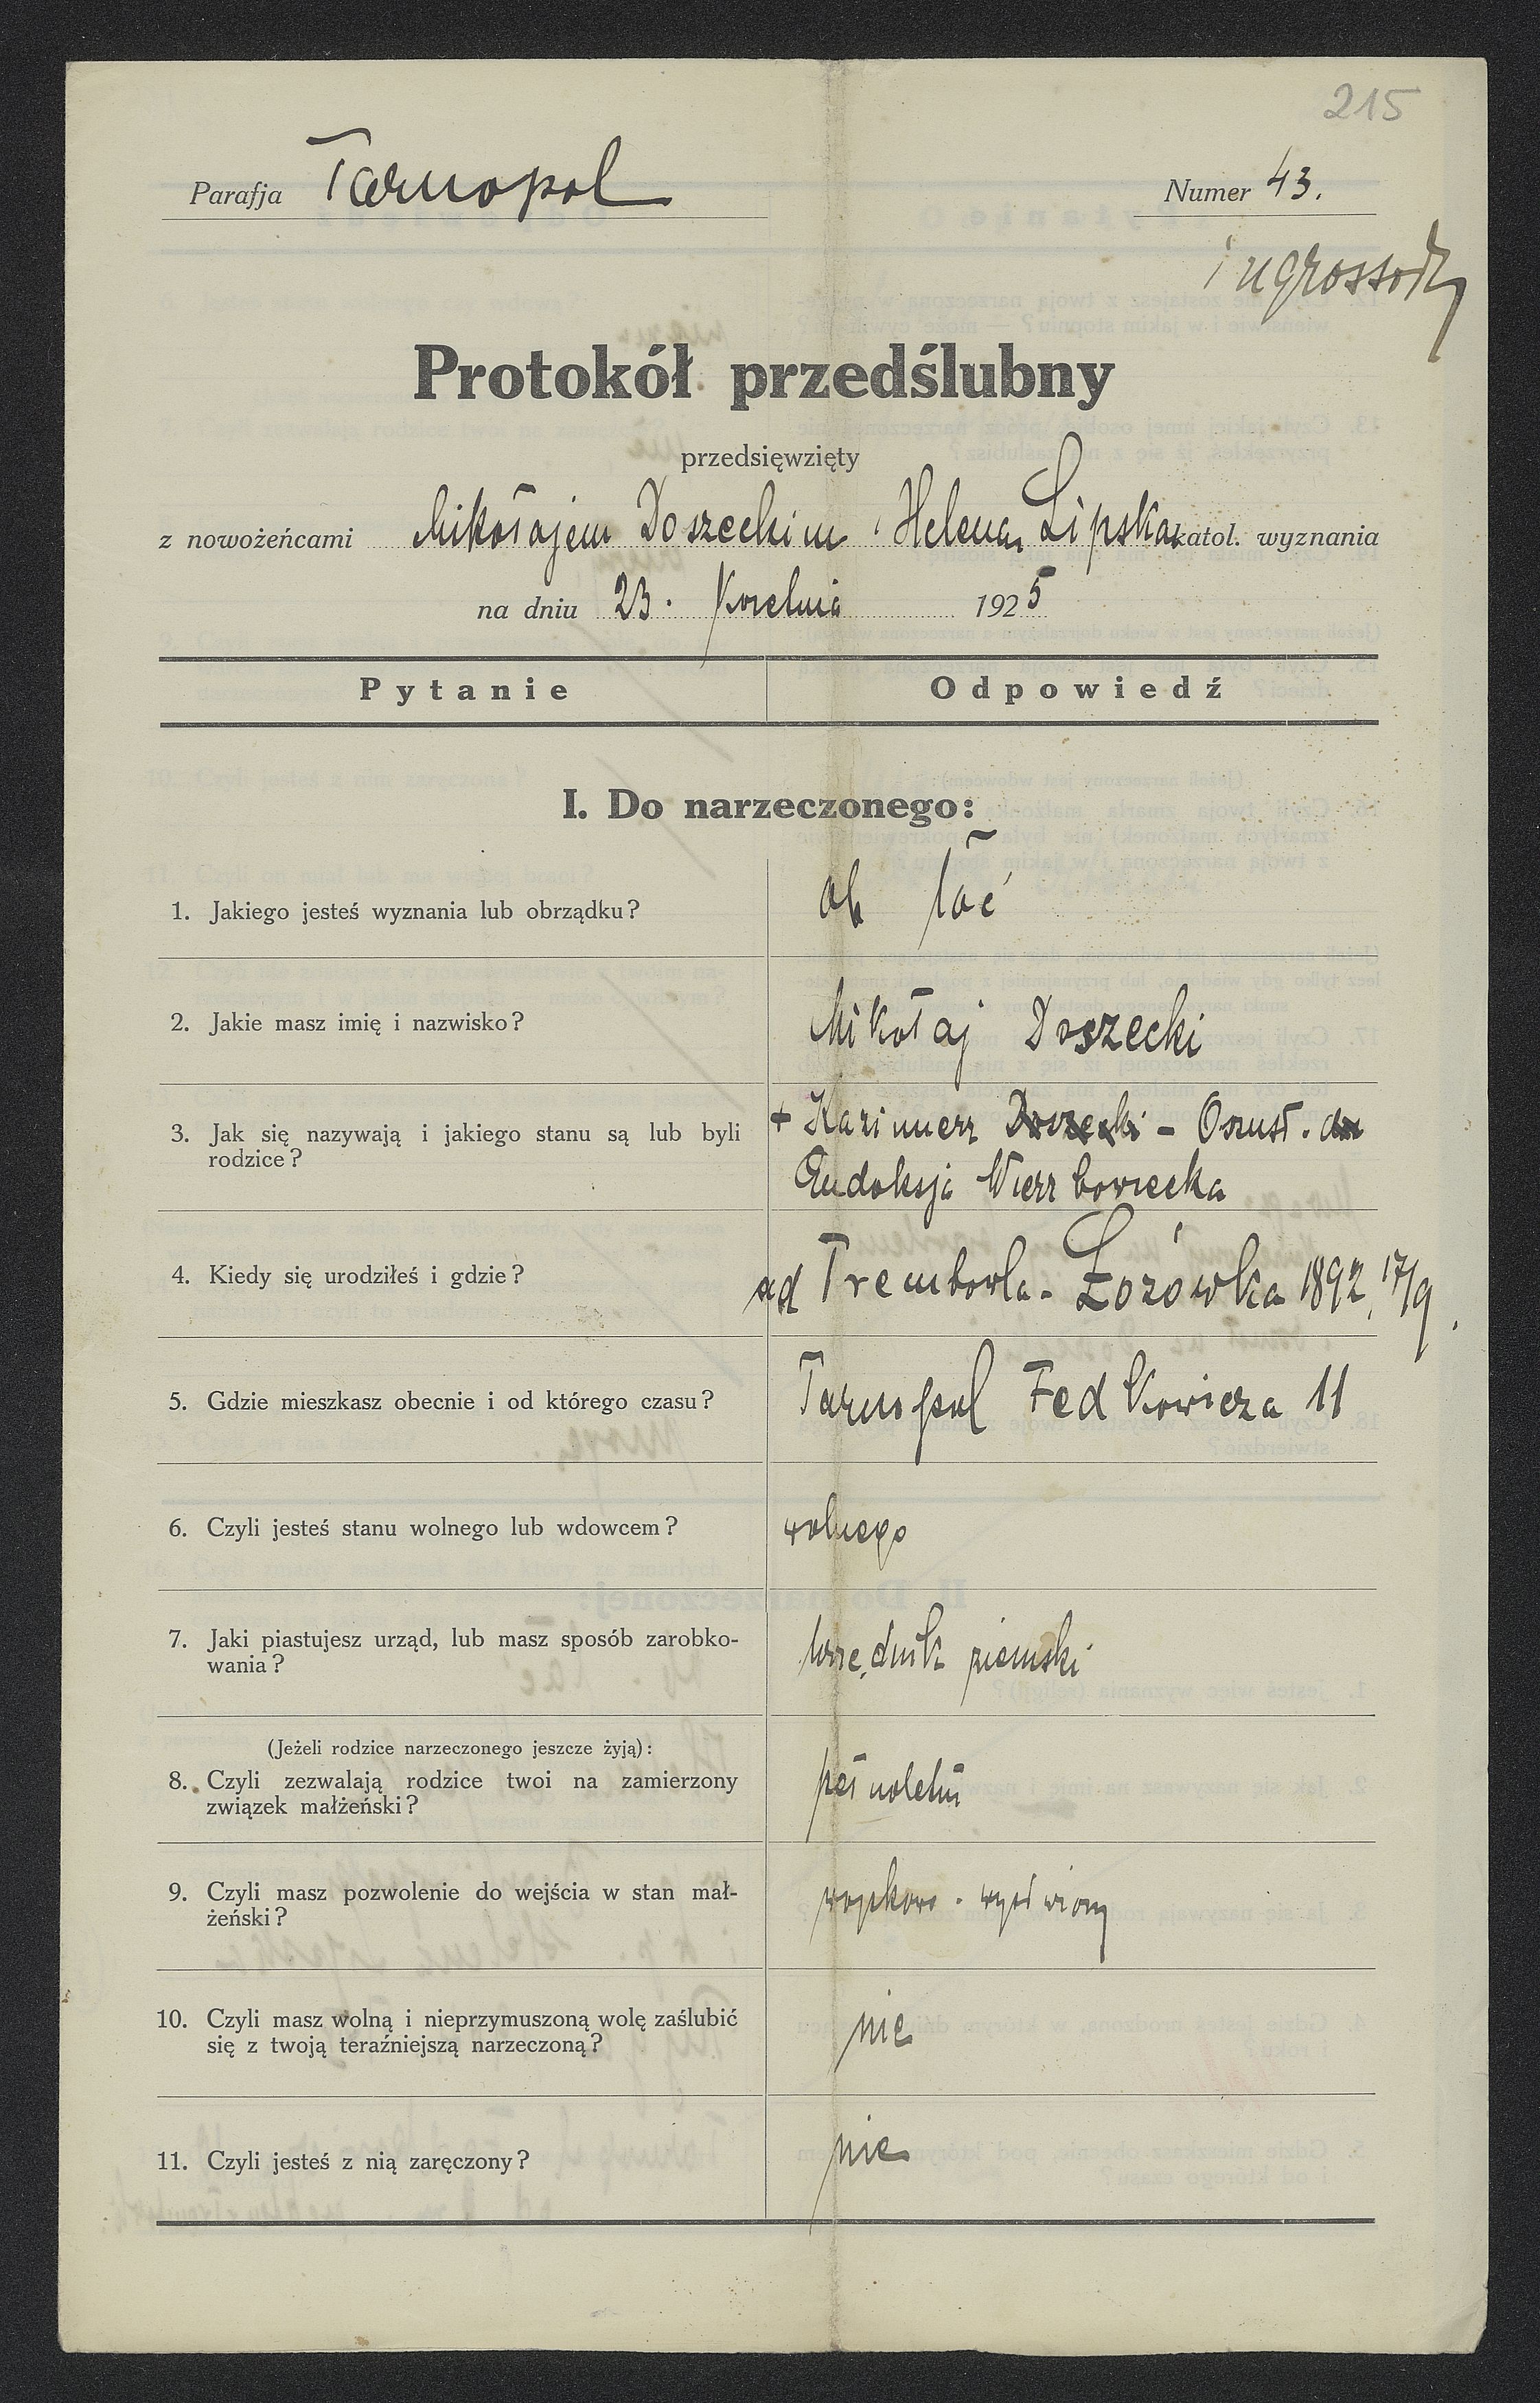 215
Parafja Tarnopol
Numer 43.
Protokół przedślubny
przedsięwzięty
z nowożeńcami Mikołajem Doszeckim i Heleną Lipską katol. wyznania
na dniu 23. Kwietnia 1925
Pytanie Odpowiedź
I. Do narzeczonego:
1. Jakiego jesteś wyznania lub obrządku? ob łać
2. Jakie masz imię i nazwisko? Mikołaj Doszecki
3. Jak się nazywają i jakiego stanu są lub byli + Kazimierz Doszecki - Oszust.
rodzice? Eudoksja Wierzbowiecka
4. Kiedy się urodziłeś i gdzie? ad Trembowla - Łozówka 1892, 17/9.
5. Gdzie mieszkasz obecnie i od którego czasu? Tarnopol Fedkowicza 11
6. Czyli jesteś stanu wolnego lub wdowcem? wolnego
7. Jaki piastujesz urząd, lub masz sposób zarobko-
wania? urzędnik ziemski
(Jeżeli rodzice narzeczonego jeszcze żyją):
8. Czyli zezwalają rodzice twoi na zamierzony
związek małżeński? pełnoletni
9. Czyli masz pozwolenie do wejścia w stan mał-
żeński?
10. Czyli masz wolną i nieprzymuszoną wolę zaślubić
się z twoją teraźniejszą narzeczoną? nie
11. Czyli jesteś z nią zaręczony? nie